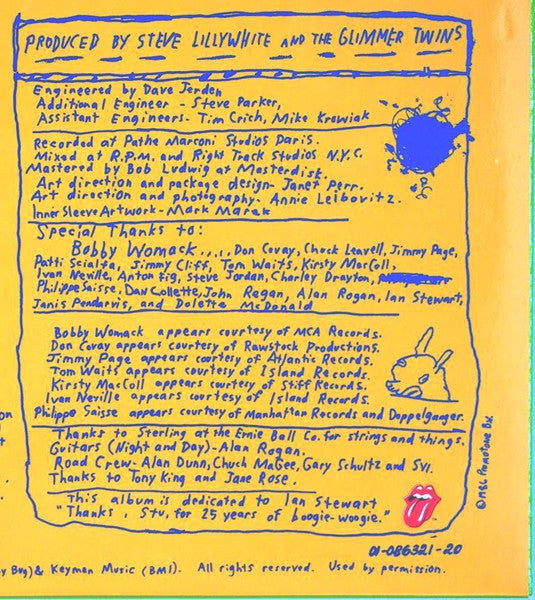 PRODUCED BY STEVE LILLYWHITE AND THE GLIMMER TWINS
Engineered by Dave Jerden
Additional Engineer - Steve Parker,
Assistant Engineers - Tim Crich, Mike Krowiak
Recorded at Pathe Marconi Studios Paris.
Mixed at R.P.M. and Right Track Studios N.Y.C.
Mastered by Bob Ludwig at Masterdisk.
Art direction and package design - Janet Perr.
Art direction and photography - Annie Leibovitz.
Inner Sleeve Artwork - Mark Marek
Special Thanks to:
Bobby Womack...., Don Covay, Chuck Leavell, Jimmy Page,
Patti Scialfa, Jimmy Cliff, Tom Waits, Kirsty MacColl,
Ivan Neville, Anton Fig, Steve Jordan, Charley Drayton,
Philippe Saisse, Dan Collette, John Regan, Alan Rogan, Ian Stewart,
Janis Pendarvis, and Dolette McDonald
Bobby Womack appears courtesy of MCA Records.
Don Covay appears courtesy of Rawstock Productions.
Jimmy Page appears courtesy of Atlantic Records.
Tom Waits appears courtesy of Island Records.
Kirsty MacColl appears courtesy of Stiff Records.
Ivan Neville appears courtesy of Island Records.
Philippe Saisse appears courtesy of Manhattan Records and Doppelganger.
Thanks to Sterling at the Ernie Ball Co. for strings and things.
Guitars (Night and Day) - Alan Rogan.
Road Crew - Alan Dunn, Chuck Magee, Gary Schultz and Svi.
Thanks to Tony King and Jane Rose.
This album is dedicated to Ian Stewart
"Thanks, Stu, for 25 years of boogie-woogie."
01-086321-20
Bug) & Keyman Music (BMI). All rights reserved. Used by permission.